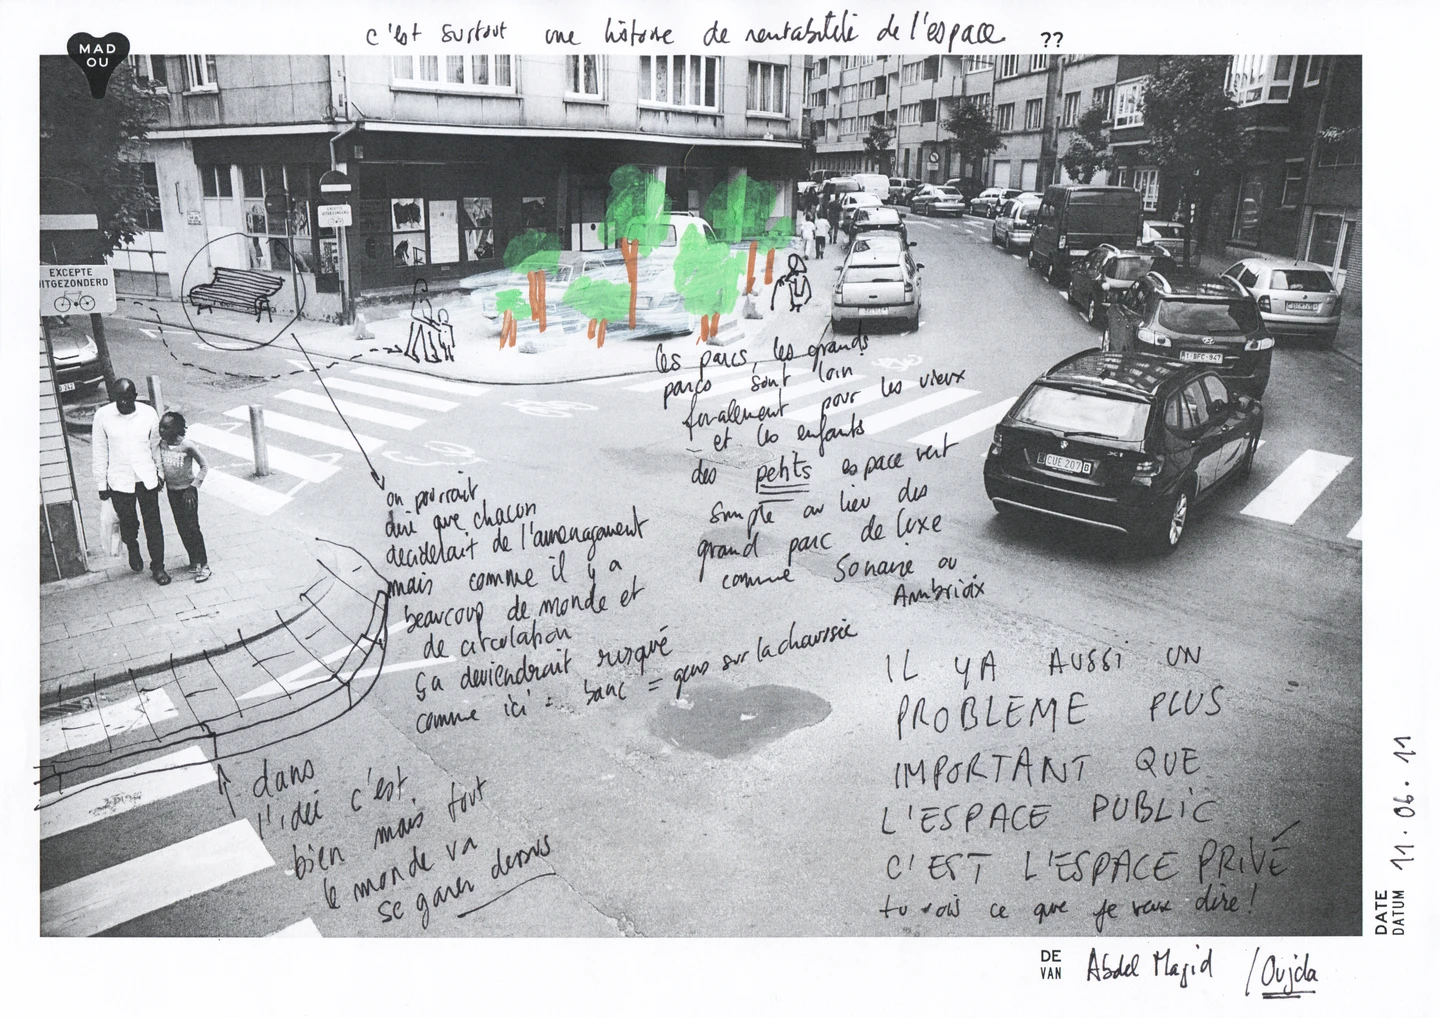 c'est surtout une histoire de rentabilité de l'espace ??
MAD
OU
EXCEPTE
UITGEZONDERD
EXCEPTE
UITGEZONDERD
les parcs, les grands
parcs sont loin
finalement pour les vieux
et les enfants
des petits espace vert
simple au lieu des
grand parc de luxe
comme Sonaire ou
Ambrioix
on pourrait
dire que chacun
deciderait de l'aménagement
mais comme il y a
beaucoup de monde et
de circulation
ça deviendrait risqué
comme ici = banc = gens sur la chaussée
1-BFC-947
CUE 207
X1
IL Y A AUSSI UN
PROBLEME PLUS
IMPORTANT QUE
L'ESPACE PUBLIC
C'EST L'ESPACE PRIVÉ
tu vois ce que je veux dire !
dans
l'idée c'est
bien mais tout
le monde va
se garer dessus
DATE
DATUM
11.06.11
DE
VAN
Abdel Magid / Oujda